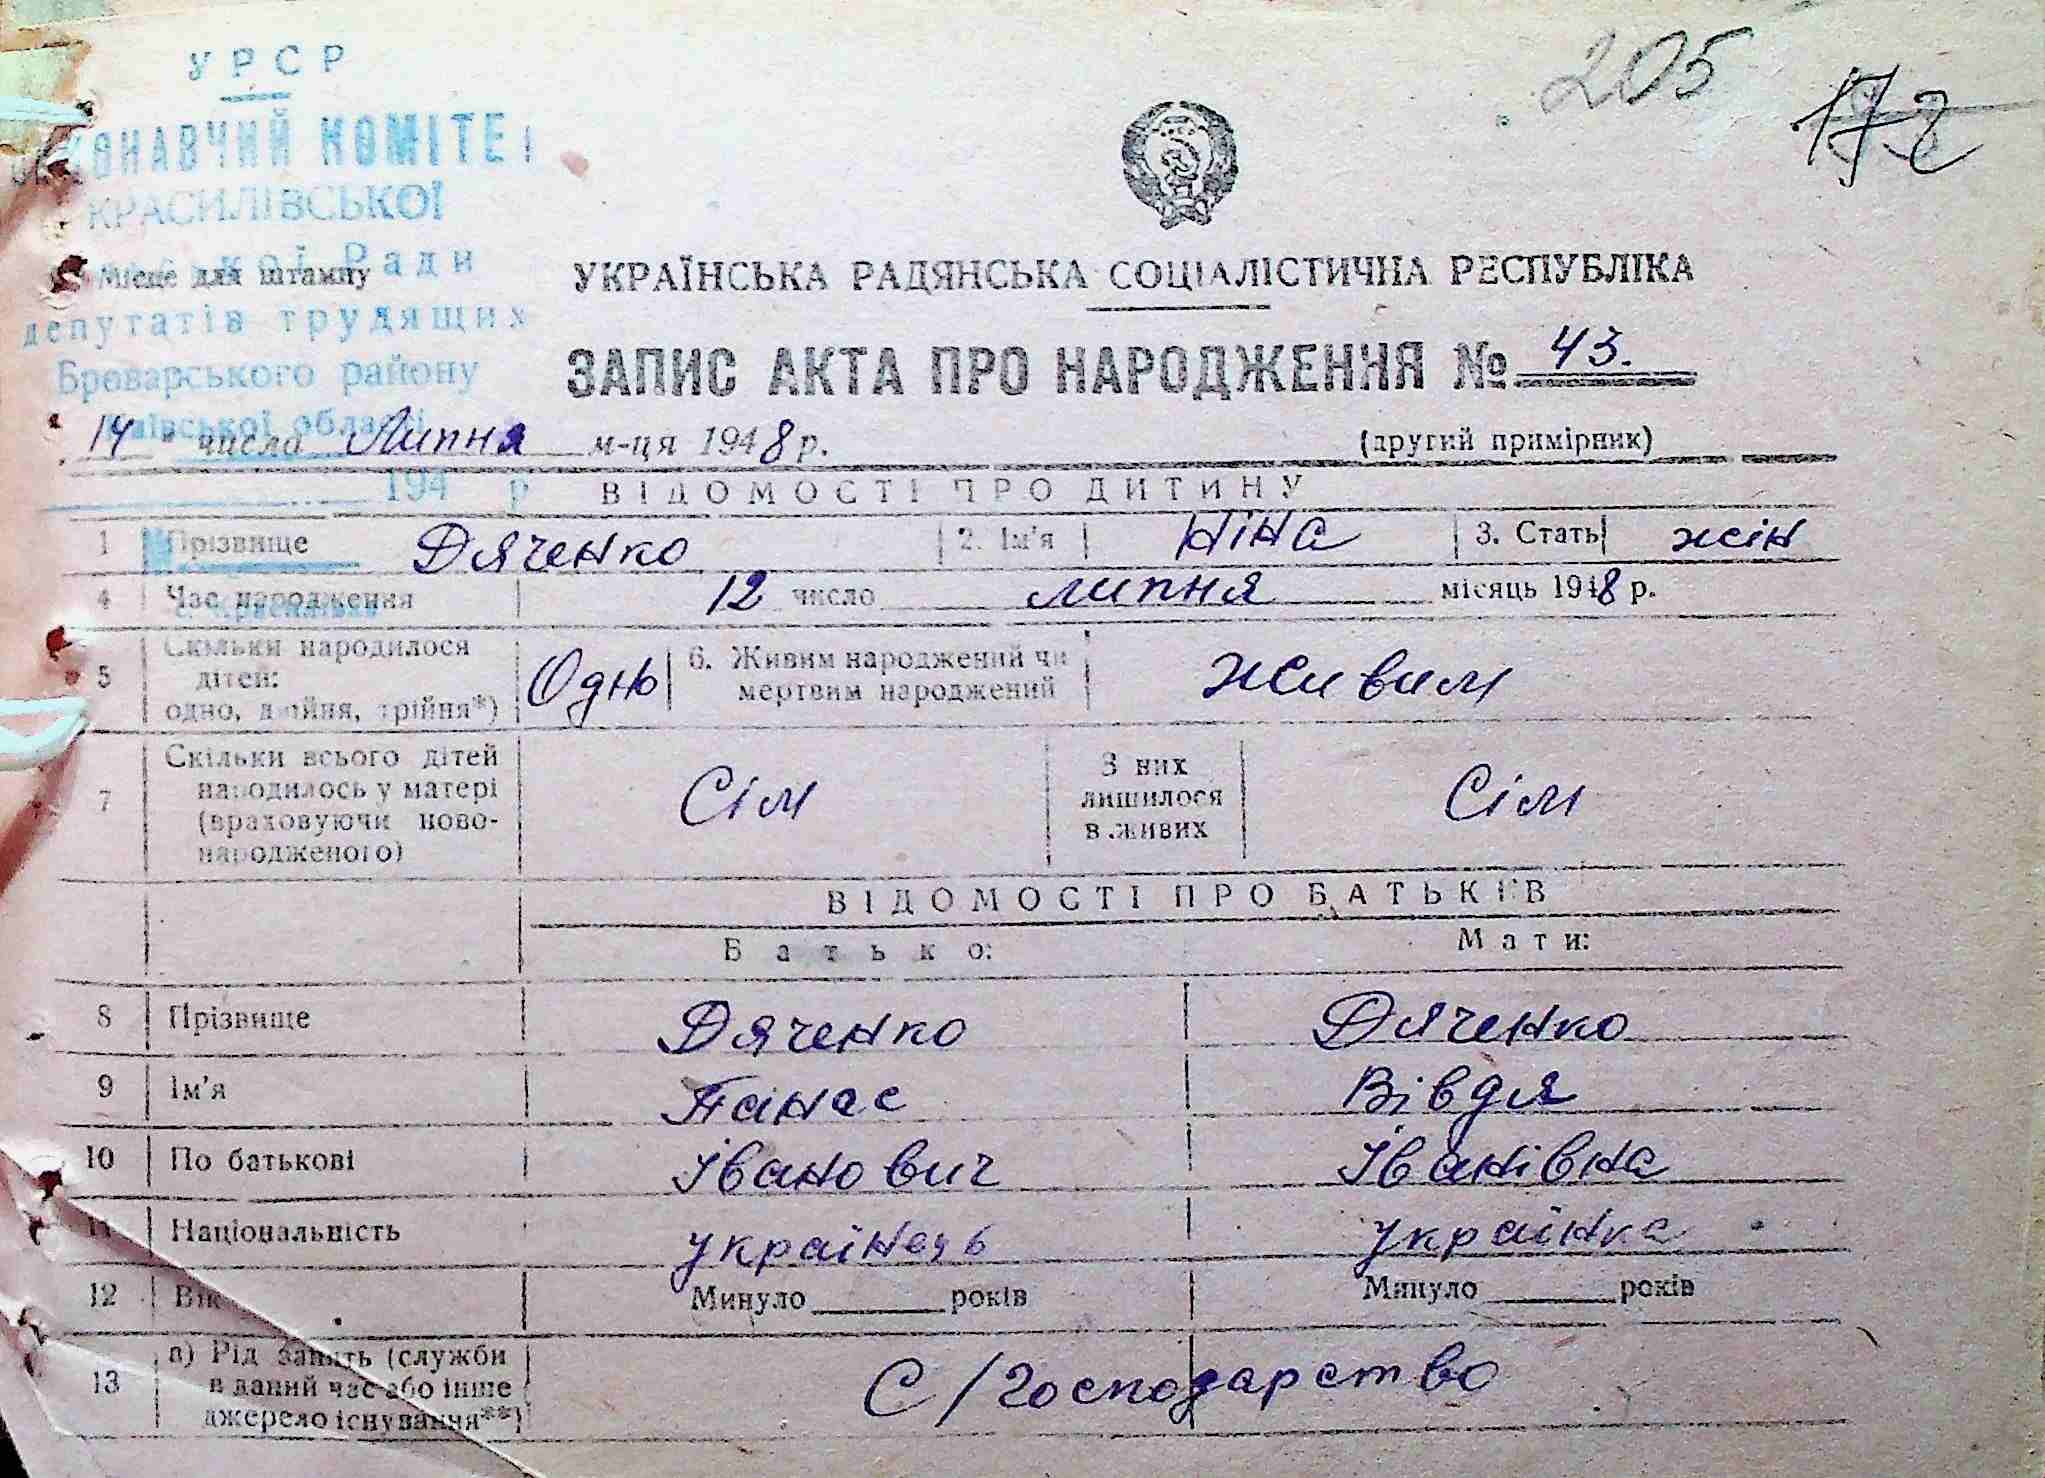 205
172
УРСР
ВИКОНАВЧИЙ КОМІТЕТ
КРАСИЛІВСЬКОЇ
Ради
Місце для штампу
депутатів трудящих
Броварського району
Київської області
194 р
УКРАЇНСЬКА РАДЯНСЬКА СОЦІАЛІСТИЧНА РЕСПУБЛІКА
ЗАПИС АКТА ПРО НАРОДЖЕННЯ № 43.
14 " числа Липня м-ця 1948 р. (другий примірник)
ВІДОМОСТІ ПРО ДИТИНУ
1 Прізвище Дяченко 2. Ім'я Ніна 3. Стать жін
4 Час народження 12 число липня місяць 1948 р.
5 Скільки народилося дітей: одно, двійня, трійня*) Одно 6. Живим народжений чи мертвим народжений Живим
7 Скільки всього дітей народилось у матері (враховуючи ново-народженого) Сім З них лишилося в живих Сім
ВІДОМОСТІ ПРО БАТЬКІВ
Батько: Мати:
8 Прізвище Дяченко Дяченко
9 Ім'я Панас Вівдя
10 По батькові Іванович Іванівна
11 Національність українець українка
12 Вік Минуло років Минуло років
13 а) Рід занять (служби в даний час або інше джерело існування**) С/господарство